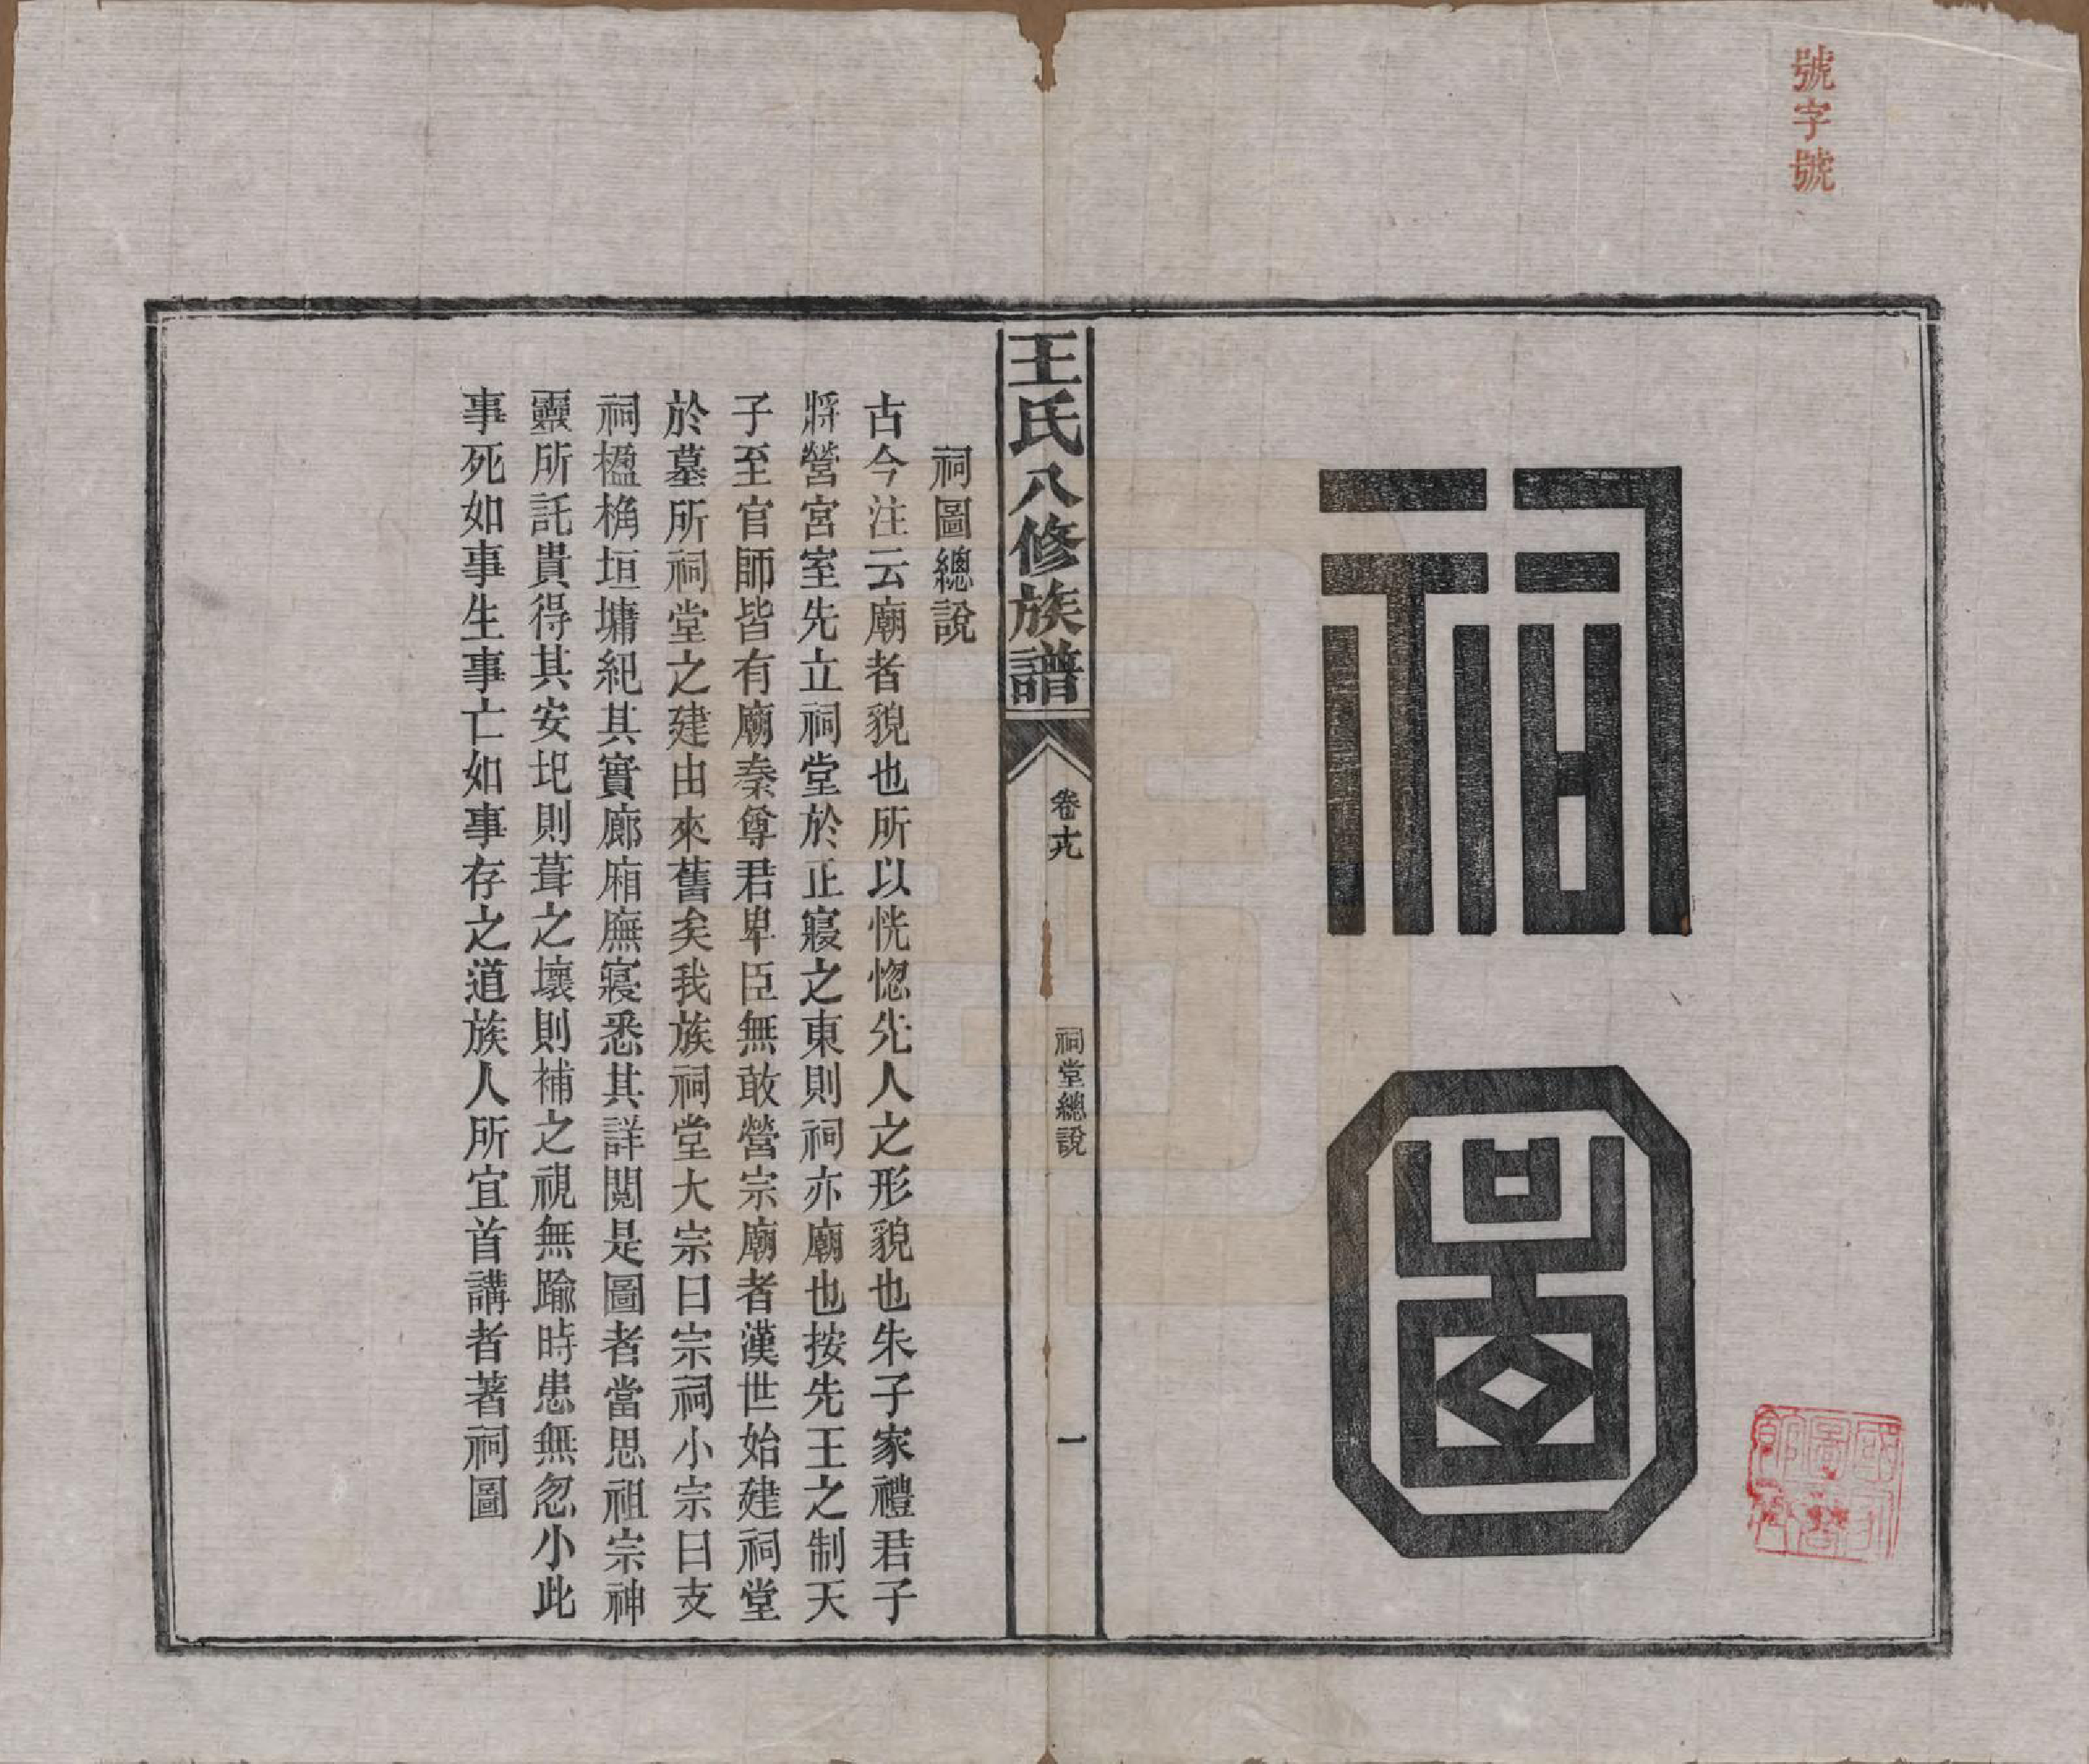 號字號
祠圖
王氏八修族譜
卷十九
祠堂總說
一
祠圖總說
古今注云廟者貌也所以恍惚先人之形貌也朱子家禮君子
將營宮室先立祠堂於正寢之東則祠亦廟也按先王之制天
子至官師皆有廟秦尊君卑臣無敢營宗廟者漢世始建祠堂
於墓所祠堂之建由來舊矣我族祠堂大宗曰宗祠小宗曰支
祠楹桷垣墉紀其實廊廂廡寢悉其詳閱是圖者當思祖宗神
靈所託貴得其安圯則葺之壞則補之視無踰時患無忽小此
事死如事生事亡如事存之道族人所宜首講者著祠圖